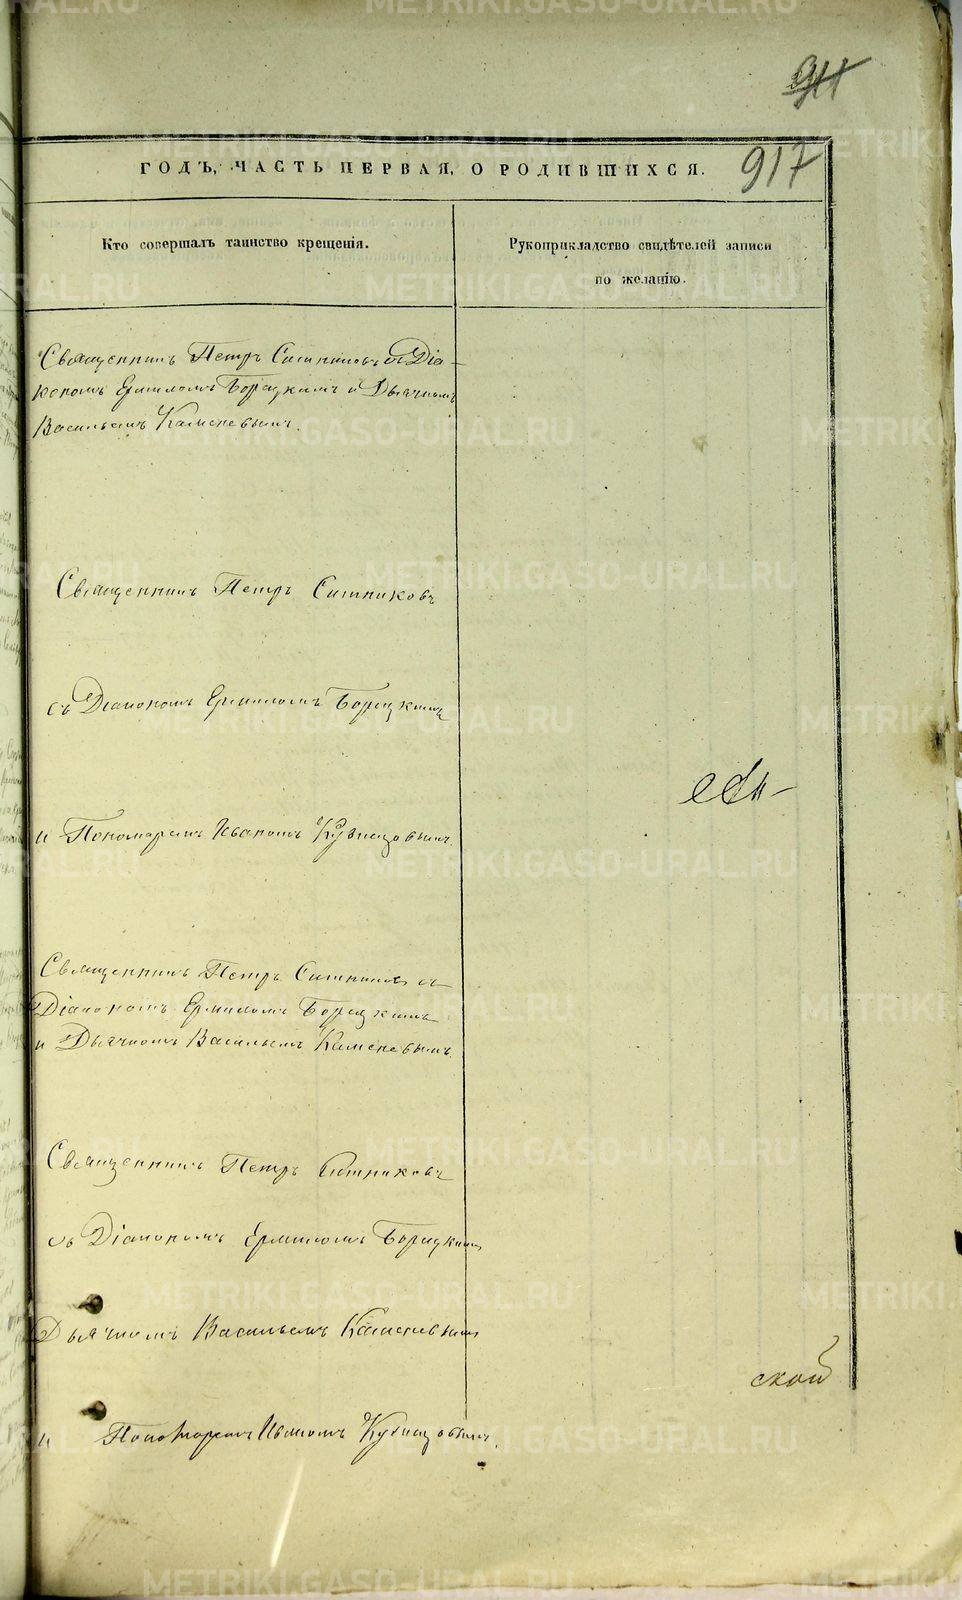 911
917
ГОДЪ, ЧАСТЬ ПЕРВАЯ, О РОДИВШИХСЯ.
Кто совершалъ таинство крещенія.
Рукоприкладство свидѣтелей записи
по желанію.
Священникъ Петръ Ситниковъ съ Діа-
кономъ Ермиломъ Борецкимъ и Дьячкомъ
Васильемъ Каменевымъ.
Священникъ Петръ Ситниковъ
съ Діакономъ Ермиломъ Борецкимъ
и Пономаремъ Иваномъ Кузнецовымъ
Священникъ Петръ Ситниковъ съ
Діакономъ Ермиломъ Борецкимъ
и Дьячкомъ Васильемъ Каменевымъ
Священникъ Петръ Ситниковъ
съ Діакономъ Ермиломъ Борецкимъ
Дьячкомъ Васильемъ Каменевымъ
и Пономаремъ Иваномъ Кузнецовымъ.
ской
METRIKI.GASO-URAL.RU